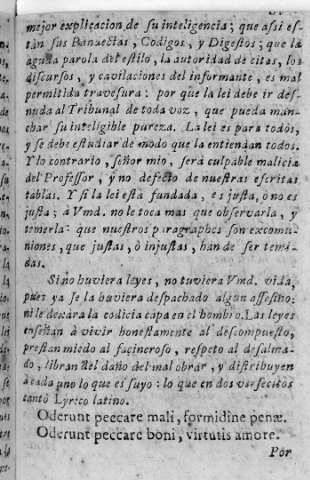 mejor explicacion de su inteligencia; que assi es-
tàn sus Pandectas, Codigos, y Digestos; que la
aguda parola del estilo, la autoridad de citas, los
discursos, y cavilaciones del informante, es mal
permitida travesura: por que la lei debe ir des-
nuda al Tribunal de toda voz, que pueda man-
char su inteligible pureza. La lei es para todos,
y se debe estudiar de modo que la entiendan todos.
Y lo contrario, señor mio, serà culpable malicia
del Professor, y no defecto de nuestras escritas
tablas. Y si la lei està fundada, es justa, ò no es
justa; à Vmd. no le toca mas que observarla, y
temerla: que nuestros paragraphos son excomu-
niones, que justas, ò injustas, han de ser temi-
das.
Si no huviera leyes, no tuviera Vmd. vida,
pues ya se la huviera despachado algun assesino:
ni le dexàra la codicia capa en el hombro. Las leyes
enseñan à vivir honestamente al descompuesto,
prestan miedo al facineroso, respeto al desalma-
do, libran del daño del mal obrar, y distribuyen
à cada uno lo que es suyo: lo que en dos versecitos
cantò Lyrico latino.
Oderunt peccare mali, formidine penæ.
Oderunt peccare boni, virtutis amore.
Por